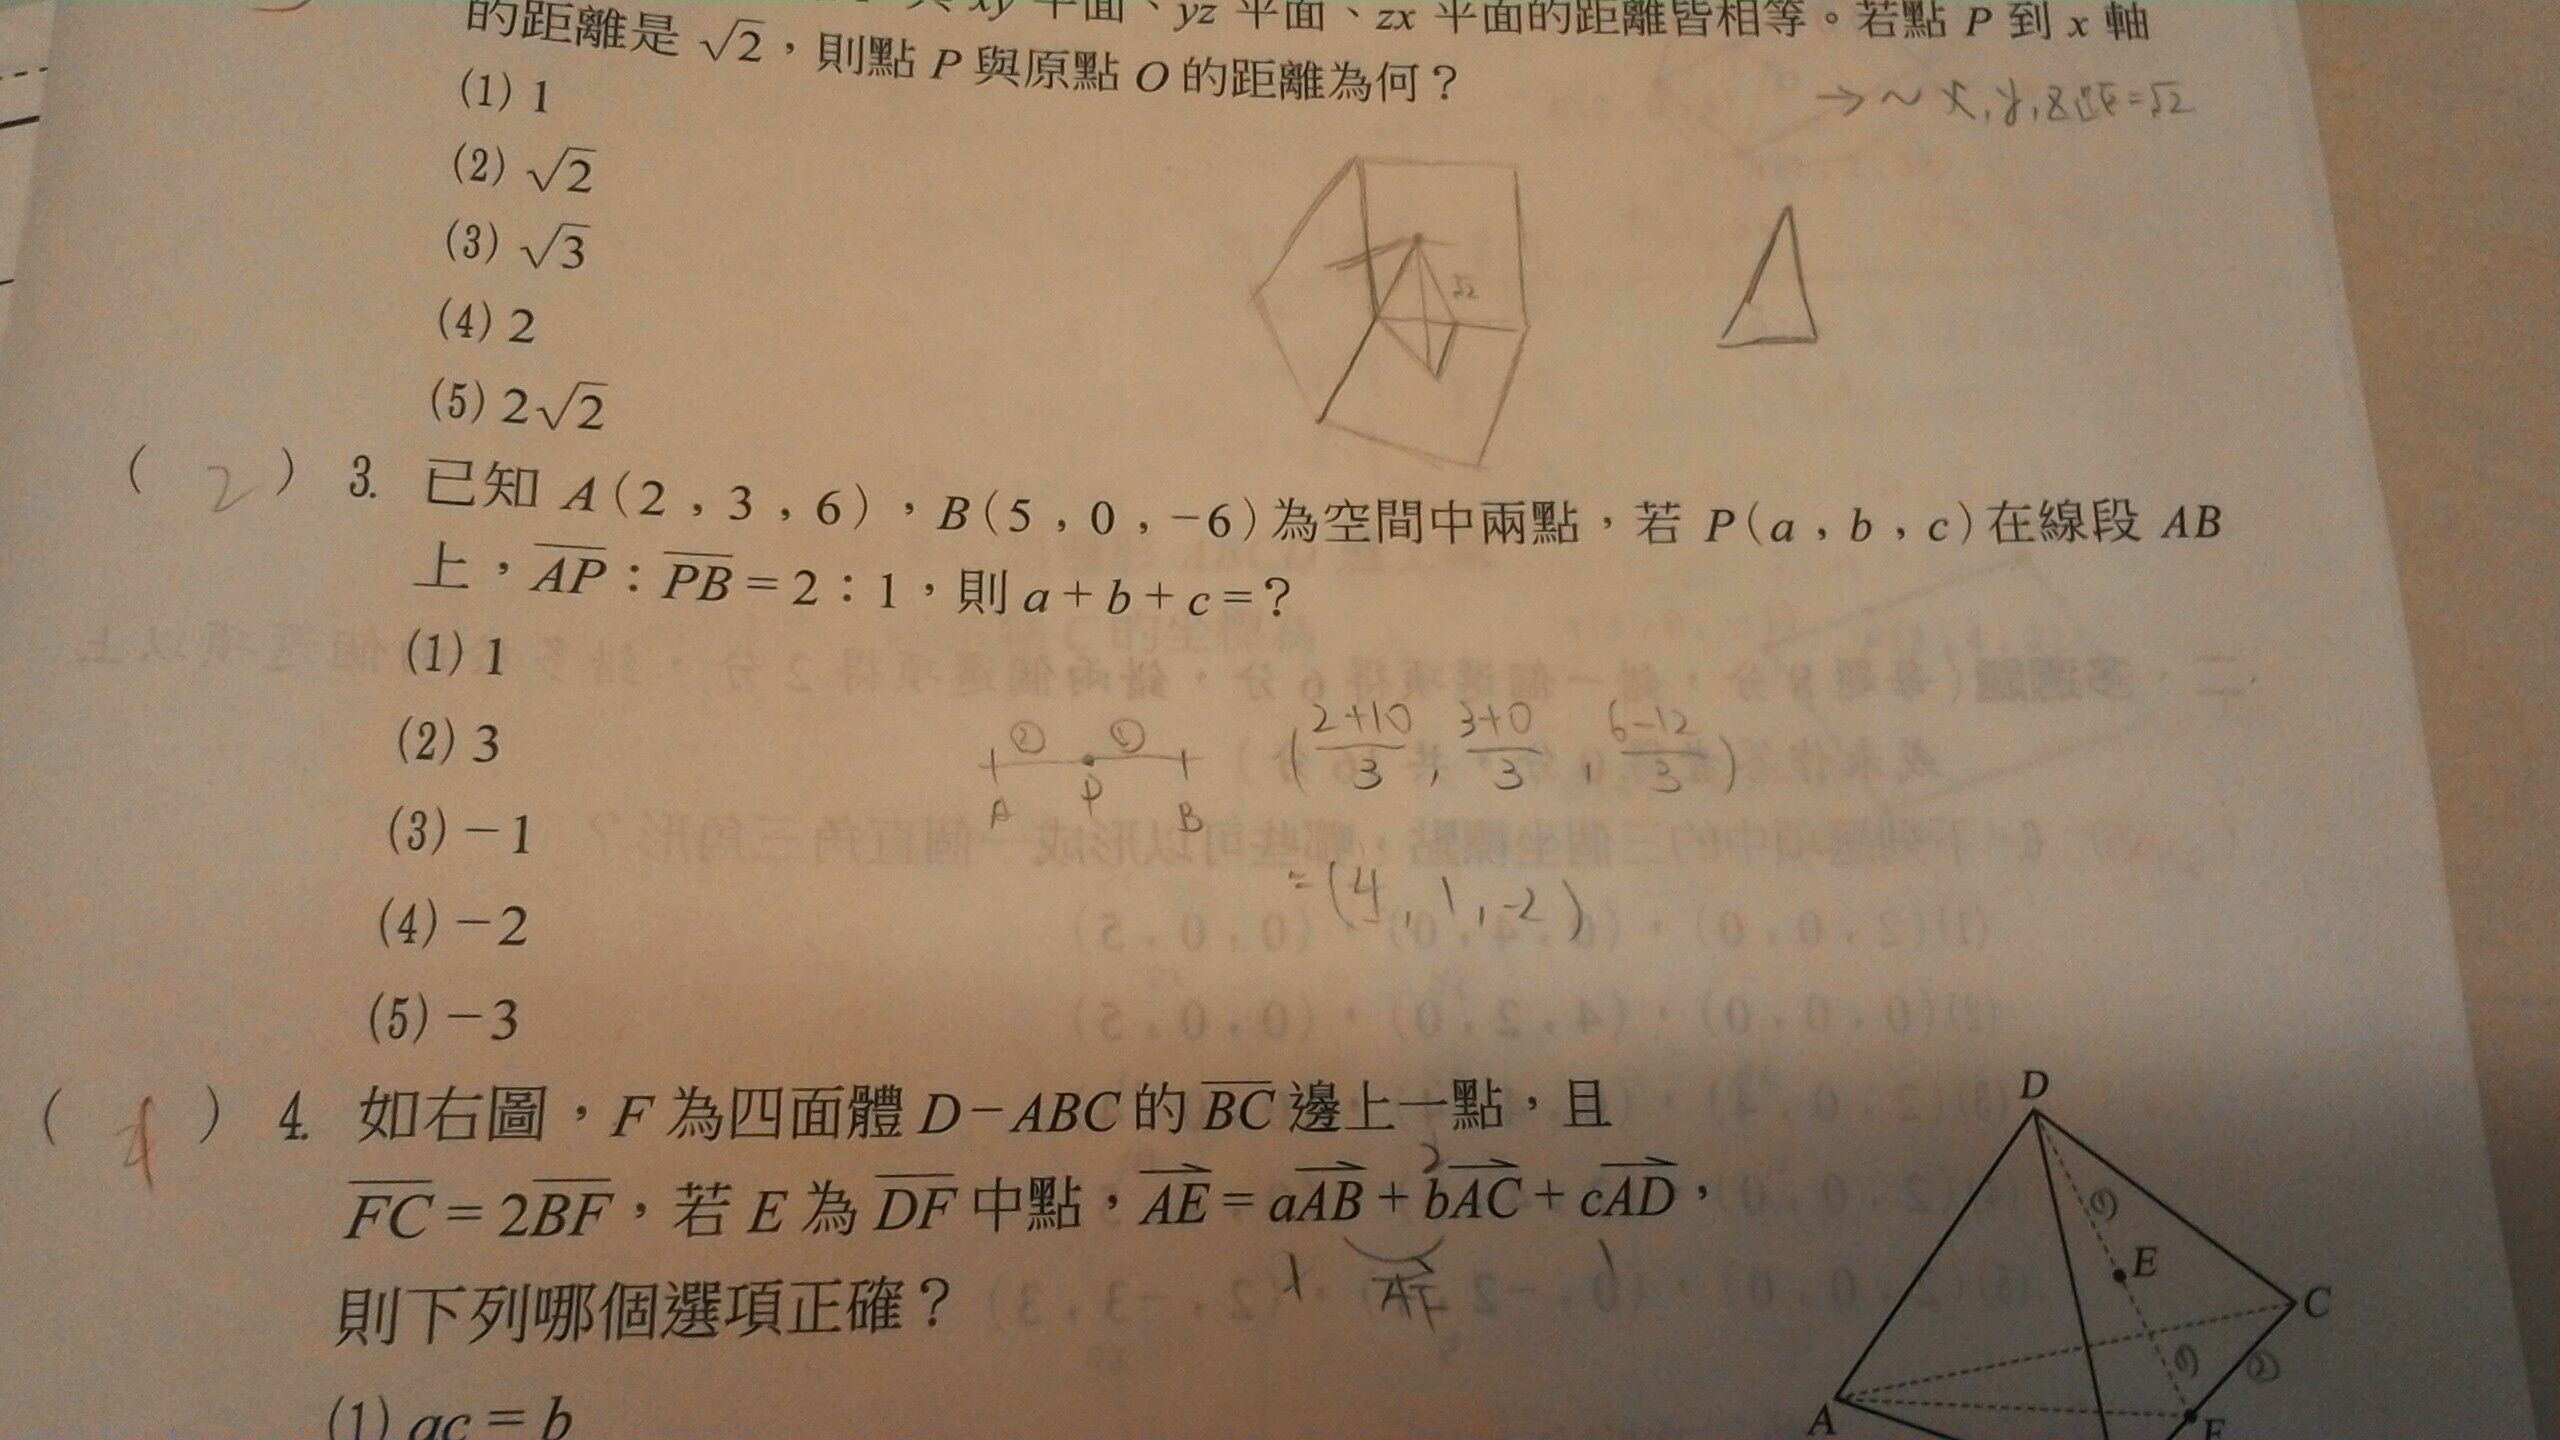 xy 平面、yz 平面、zx 平面的距離皆相等。若點 P 到 x 軸
的距離是 √2，則點 P 與原點 O 的距離為何？
(1) 1
(2) √2
(3) √3
(4) 2
(5) 2√2
√2
( 2 ) 3. 已知 A(2，3，6)，B(5，0，-6)為空間中兩點，若 P(a，b，c)在線段 AB
上，AP：PB=2：1，則 a+b+c=？
(1) 1
(2) 3
(3) -1
(4) -2
(5) -3
② ①
A P B
(2+10/3, 3+0/3, 6-12/3)
=(4, 1, -2)
4. 如右圖，F 為四面體 D-ABC 的 BC 邊上一點，且
FC=2BF，若 E 為 DF 中點，AE=aAB+bAC+cAD，
則下列哪個選項正確？
(1) ac=b
D
① E
C
① ②
A
F